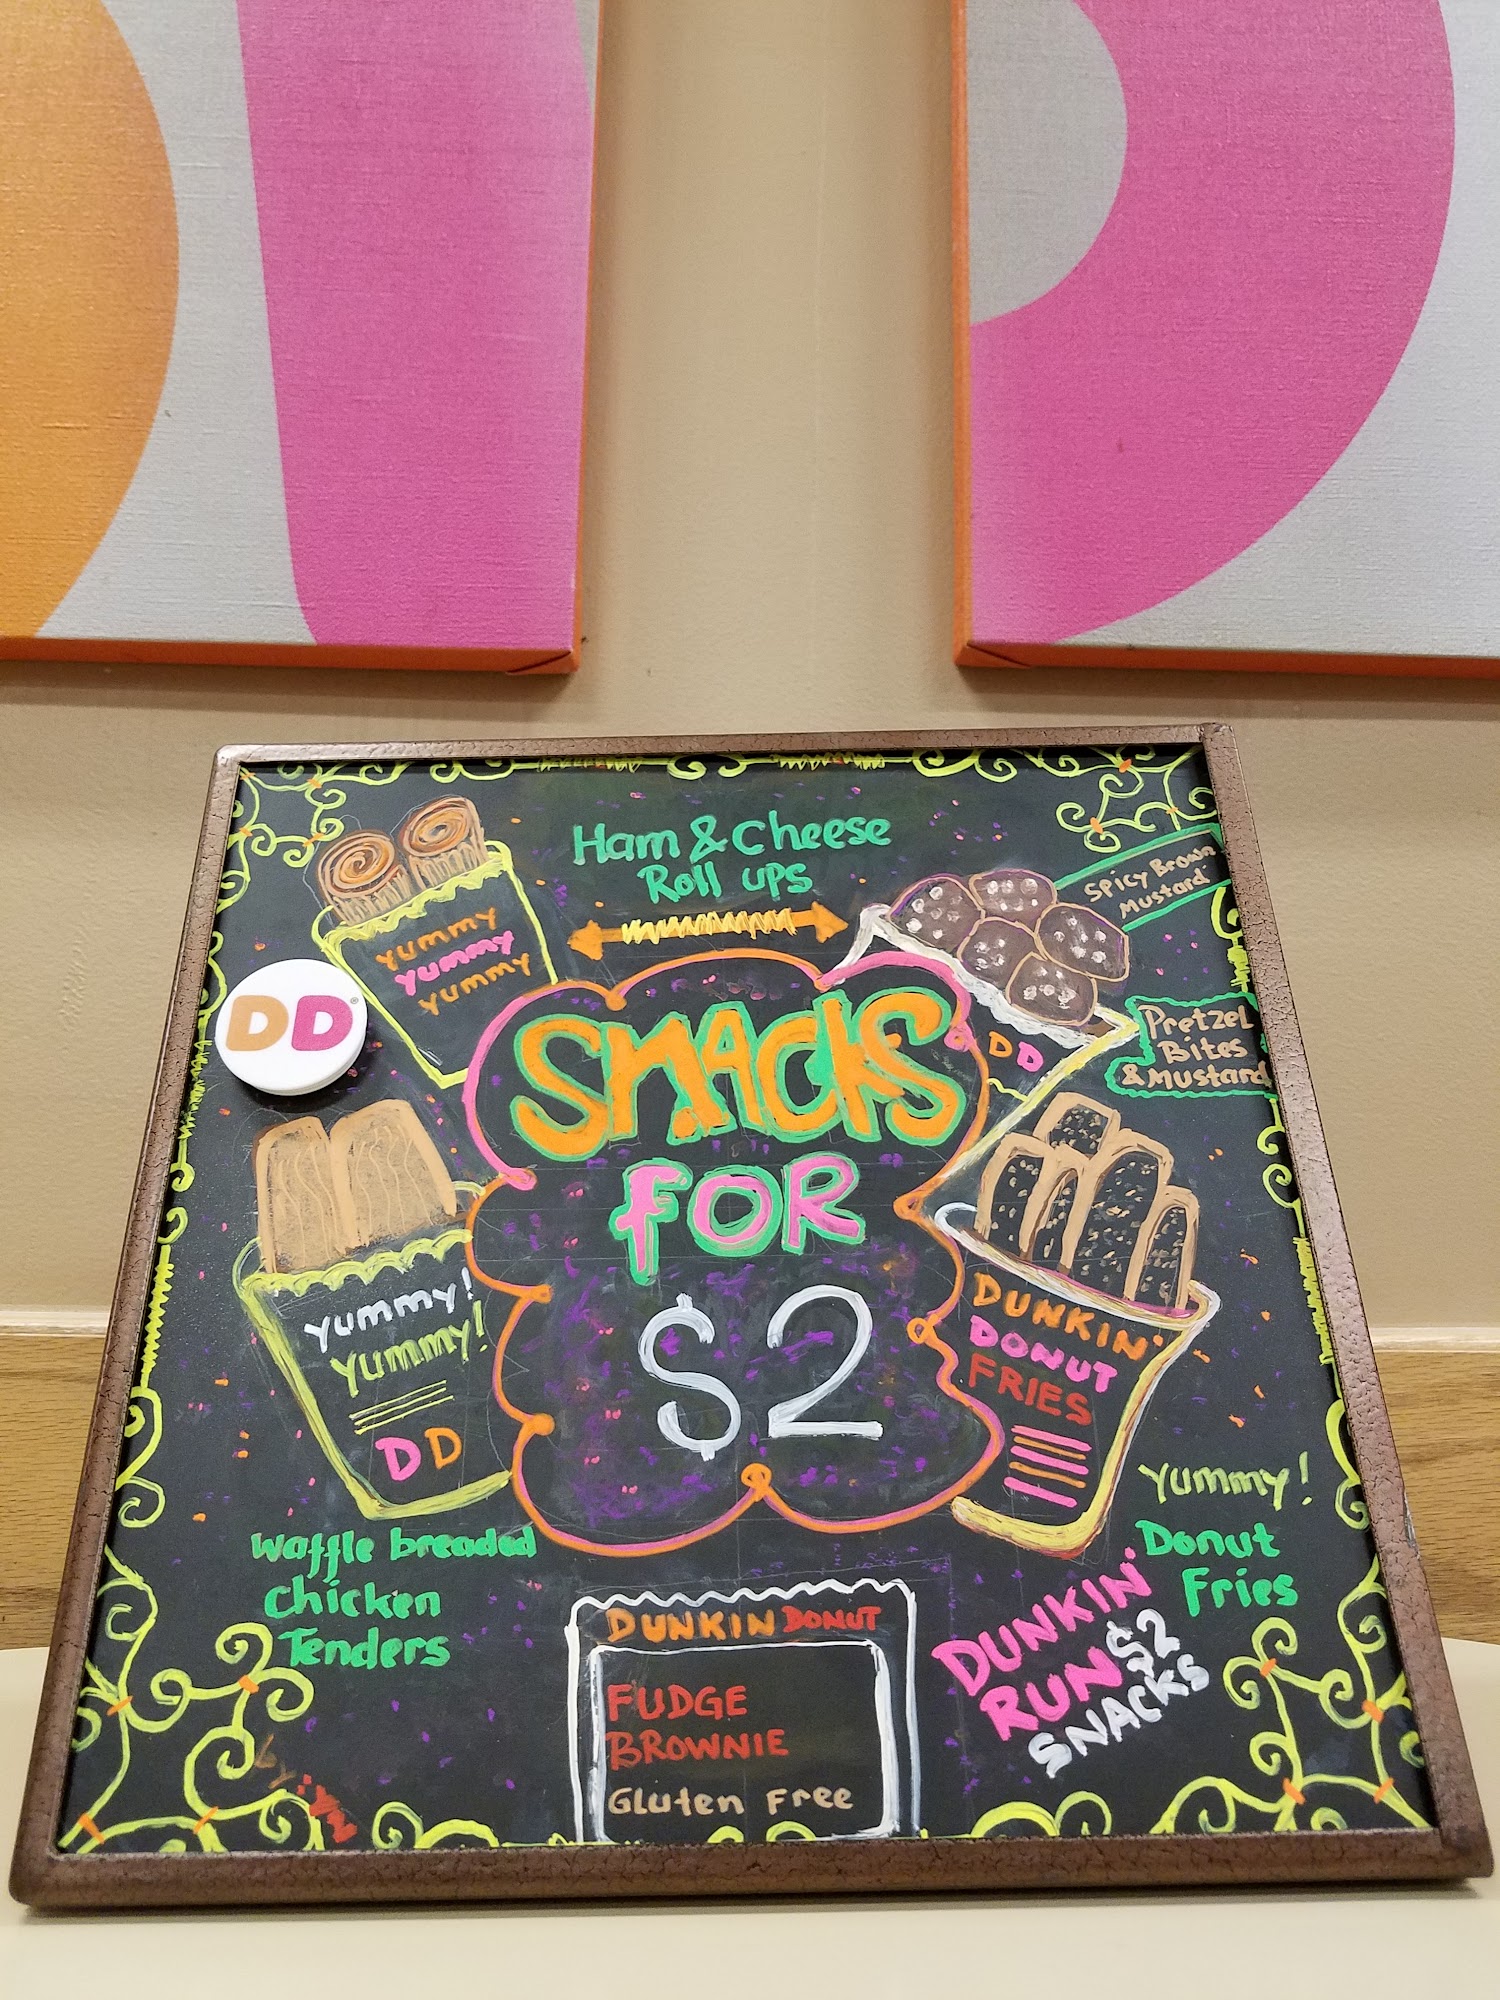 Ham & Cheese
Roll ups
yummy
yummy
yummy
Spicy Brown
Mustard
DD
DD
Pretzel
Bites
& Mustard
SNACKS
FOR
$2
yummy!
yummy!
DD
DUNKIN'
DONUT
FRIES
Yummy!
Donut
Fries
Waffle breaded
Chicken
Tenders
DUNKIN DONUT
FUDGE
BROWNIE
Gluten Free
DUNKIN'
RUN $2
SNACKS